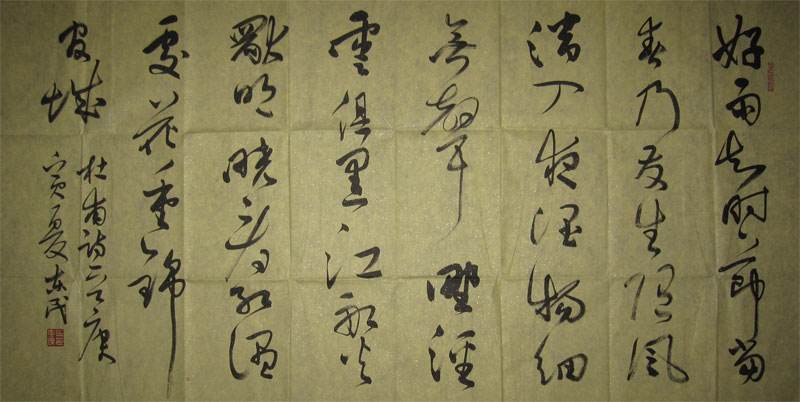 好雨知時節當
春乃發生隨風
潛入夜潤物細
無聲野徑
雲俱黑江船火
獨明曉看紅濕
處花重錦
官城
杜甫詩一首庚
寅夏